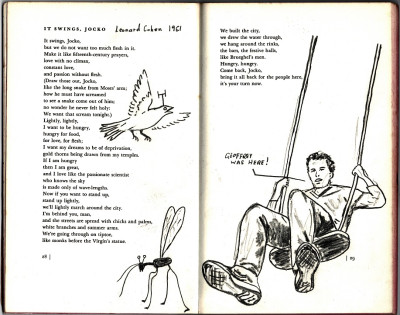 IT SWINGS, JOCKO
Leonard Cohen 1961
It swings, Jocko,
but we do not want too much flesh in it.
Make it like fifteenth-century prayers,
love with no climax,
constant love,
and passion without flesh.
(Draw those out, Jocko,
like the long snake from Moses' arm;
how he must have screamed
to see a snake come out of him;
no wonder he never felt holy:
We want that scream tonight.)
Lightly, lightly,
I want to be hungry,
hungry for food,
for love, for flesh;
I want my dreams to be of deprivation,
gold thorns being drawn from my temples.
If I am hungry
then I am great,
and I love like the passionate scientist
who knows the sky
is made only of wave-lengths.
Now if you want to stand up,
stand up lightly,
we'll lightly march around the city.
I'm behind you, man,
and the streets are spread with chicks and palms,
white branches and summer arms.
We're going through on tiptoe,
like monks before the Virgin's statue.
68 |
We built the city,
we drew the water through,
we hang around the rinks,
the bars, the festive halls,
like Brueghel's men.
Hungry, hungry.
Come back, Jocko,
bring it all back for the people here,
it's your turn now.
GEOFFREY
WAS HERE!
| 69